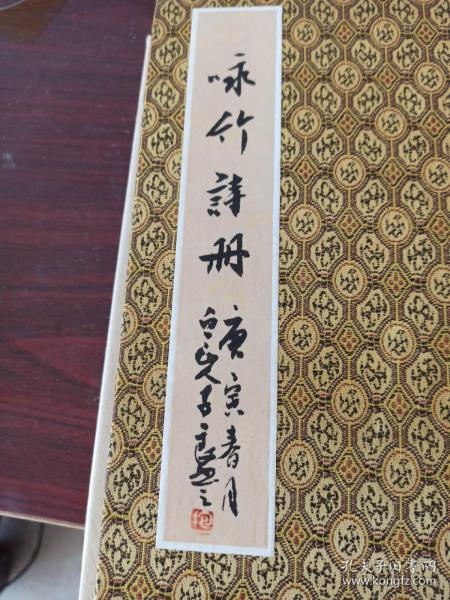 咏竹詩册
庚寅春月
孔夫子旧书网
www.kongfz.com